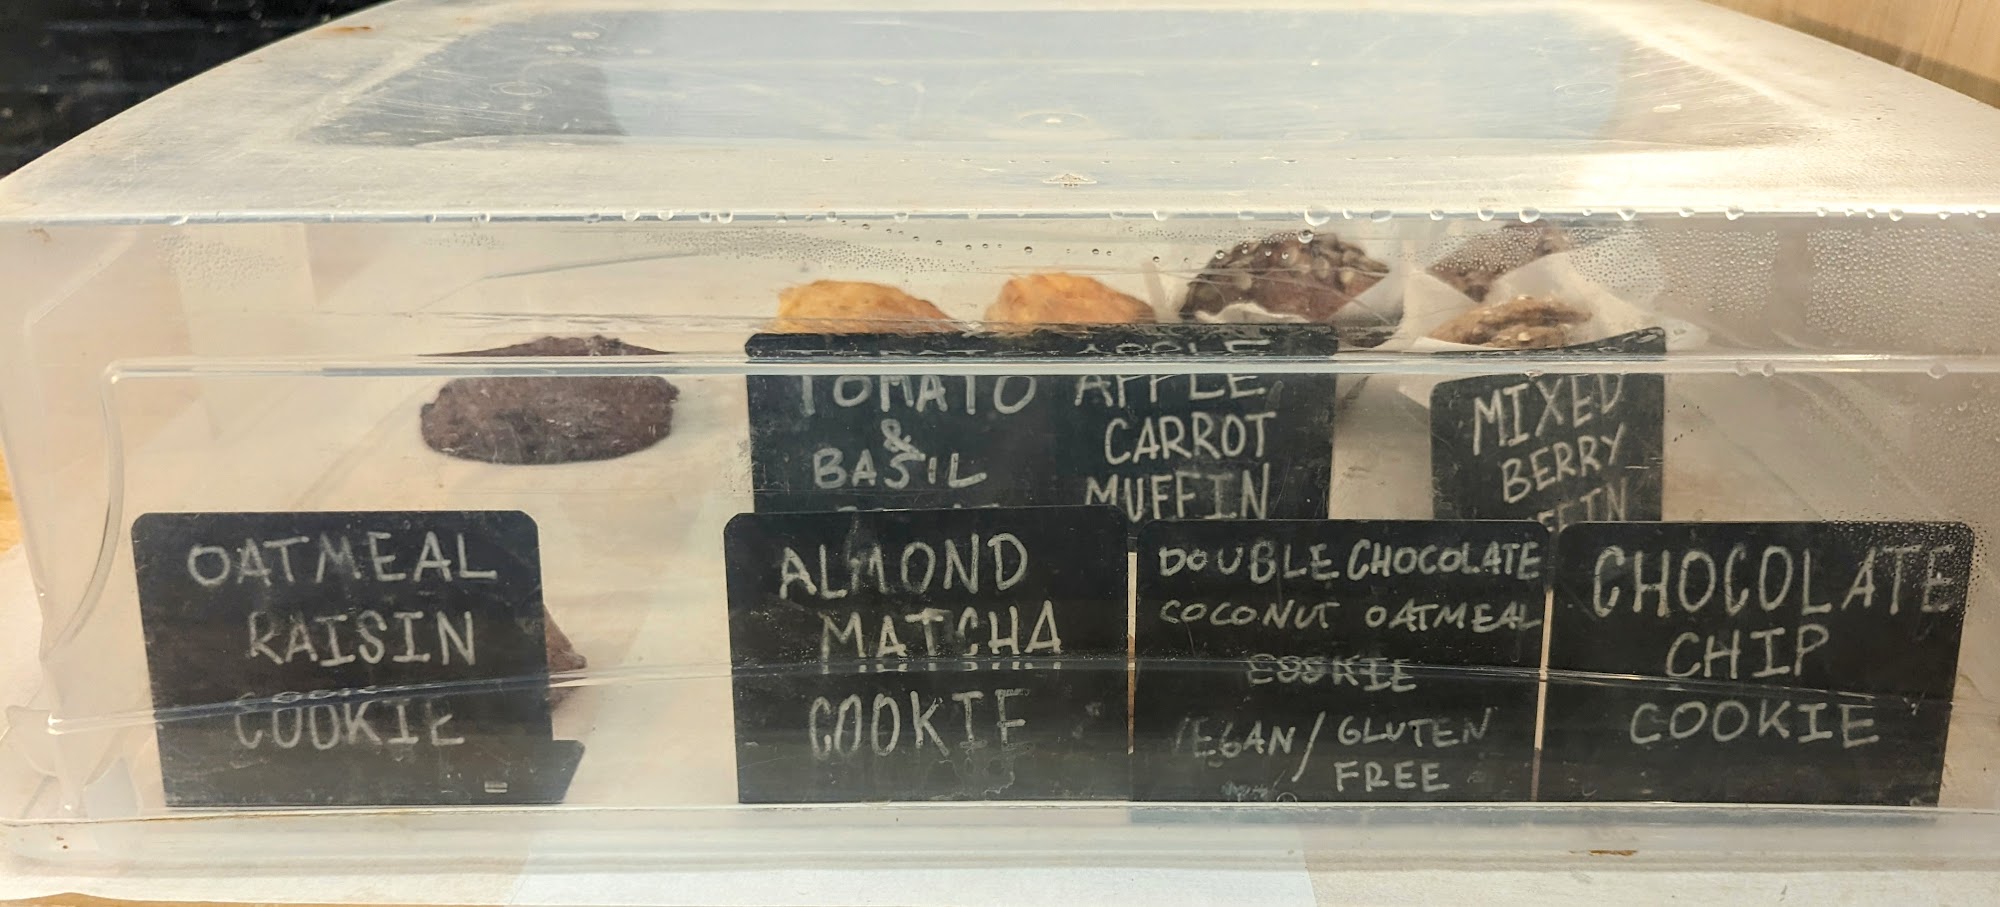 TOMATO
&
BASIL
APPLE
CARROT
MUFFIN
MIXED
BERRY
OATMEAL
RAISIN
COOKIE
ALMOND
MATCHA
COOKIE
DOUBLE CHOCOLATE
COCONUT OATMEAL
COOKIE
VEGAN/GLUTEN
FREE
CHOCOLATE
CHIP
COOKIE